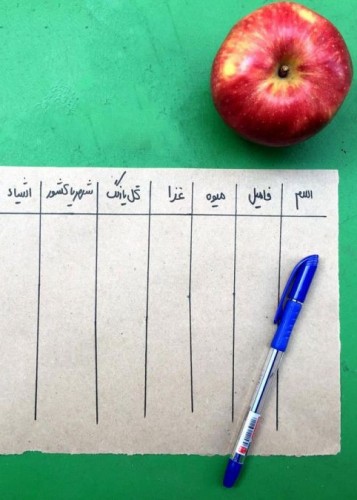 اسم فامیل میوه غذا گل یا رنگ شهر یا کشور اشیاء